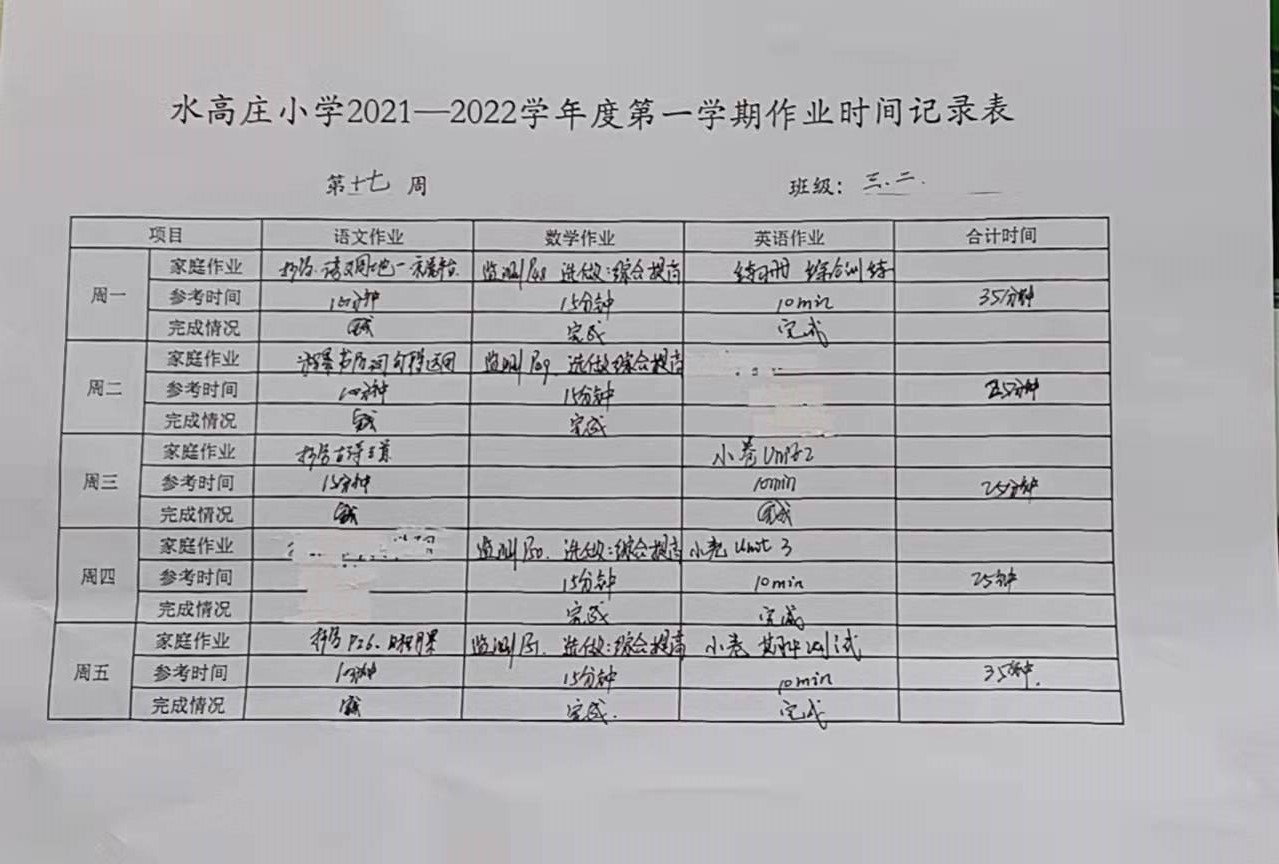 水高庄小学2021—2022学年度第一学期作业时间记录表
第十七周 班级：三.二.
项目 语文作业 数学作业 英语作业 合计时间
周一
家庭作业 监测P48 选做:综合提高 练习册 综合训练
参考时间 10分钟 15分钟 10min 35分钟
完成情况 完成 完成 完成
周二
家庭作业 监测P49. 选做:综合提高
参考时间 10分钟 15分钟 25分钟
完成情况 完成 完成
周三
家庭作业 抄写古诗三首 小卷Unit2
参考时间 15分钟 10min 25分钟
完成情况 完成 完成
周四
家庭作业 监测P50. 选做:综合提高 小卷 Unit 3
参考时间 15分钟 10min 25分钟
完成情况 完成 完成
周五
家庭作业 抄写P26. 监测P51. 选做:综合提高 小卷 期中测试
参考时间 10分钟 15分钟 10min 35分钟.
完成情况 完成 完成. 完成